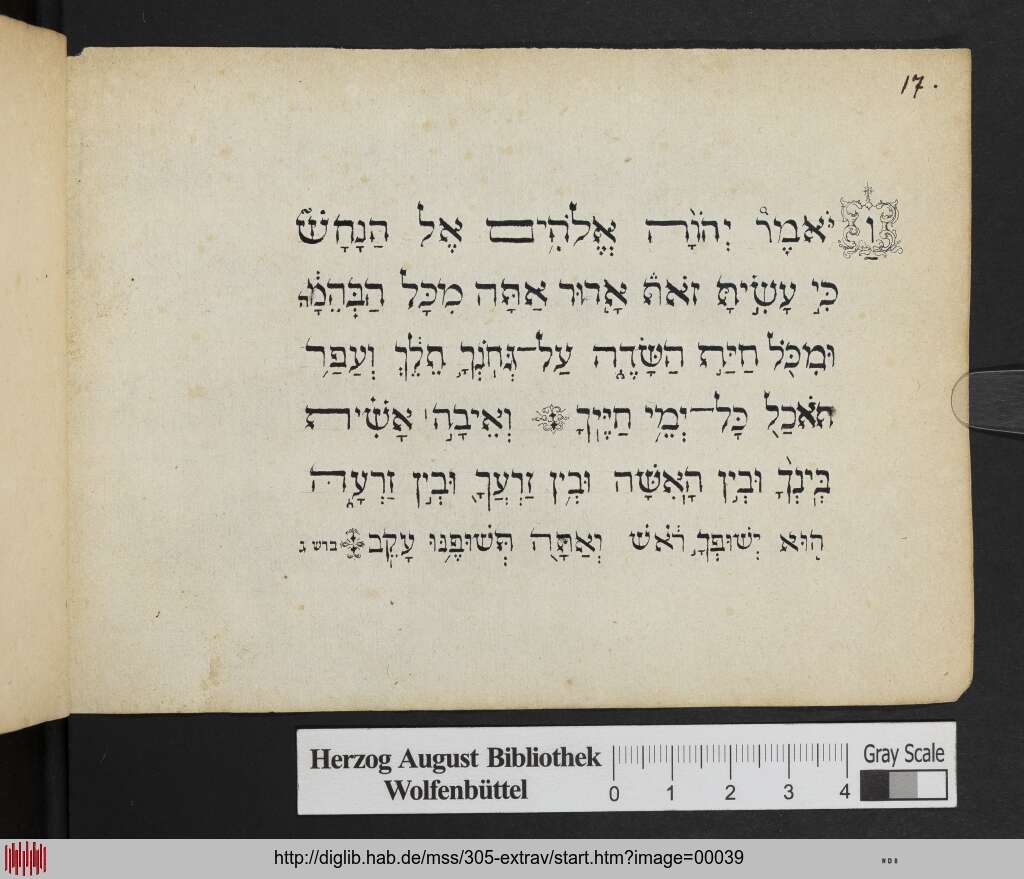 17.
וַיֹּאמֶר יְהוָֹה אֱלֹהִים אֶל הַנָּחָשׁ
כִּי עָשִׂיתָ זֹאת אָרוּר אַתָּה מִכָּל הַבְּהֵמָה
וּמִכֹּל חַיַּת הַשָּׂדֶה עַל־גְּחֹנְךָ תֵלֵךְ וְעָפַר
תֹּאכַל כָּל־יְמֵי חַיֶּיךָ וְאֵיבָה אָשִׁית
בֵּינְךָ וּבֵין הָאִשָּׁה וּבֵין זַרְעֲךָ וּבֵין זַרְעָהּ
הוּא יְשׁוּפְךָ רֹאשׁ וְאַתָּה תְּשׁוּפֶנּוּ עָקֵב
Herzog August Bibliothek
Wolfenbüttel
0 1 2 3 4
Gray Scale
http://diglib.hab.de/mss/305-extrav/start.htm?image=00039